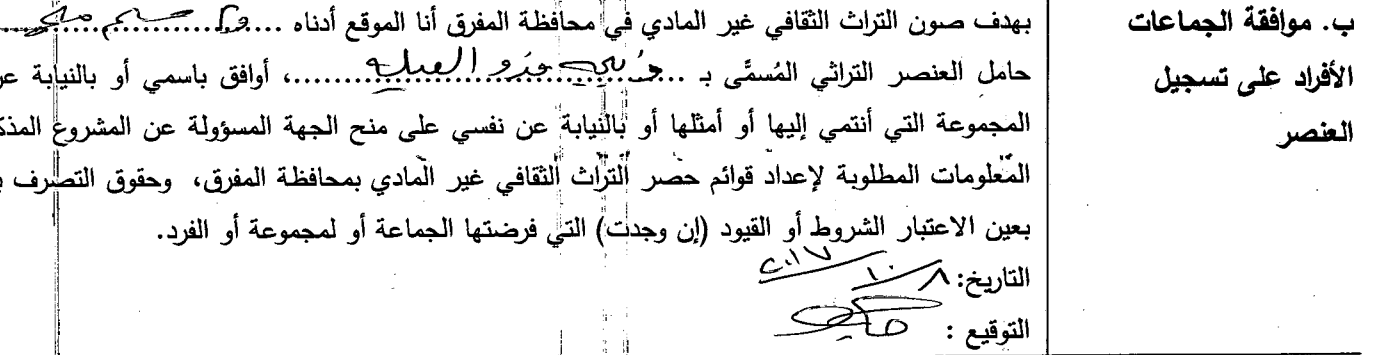 ب. موافقة الجماعات
الأفراد على تسجيل
العنصر
بهدف صون التراث الثقافي غير المادي في محافظة المفرق أنا الموقع أدناه
حامل العنصر التراثي المُسمَّى بـ ......، أوافق باسمي أو بالنيابة عن
المجموعة التي أنتمي إليها أو أمثلها أو بالنيابة عن نفسي على منح الجهة المسؤولة عن المشروع
المعلومات المطلوبة لإعداد قوائم حصر التراث الثقافي غير المادي بمحافظة المفرق، وحقوق التصرف
بعين الاعتبار الشروط أو القيود (إن وجدت) التي فرضتها الجماعة أو لمجموعة أو الفرد.
التاريخ: ٨/١٠/٢٠١٧
التوقيع :